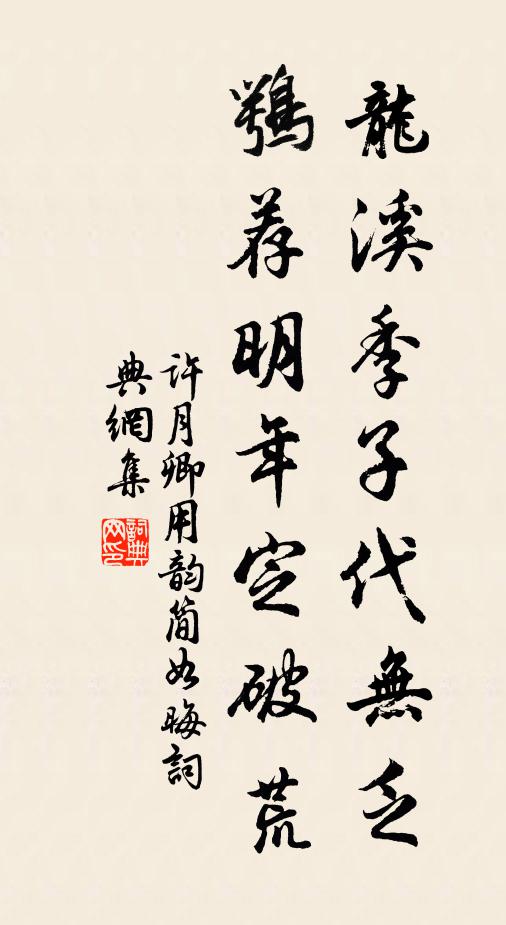 龍溪季子代無乏
鶚荐明年定破荒
許月卿用韵簡如晦詞
典網集
詞典網印